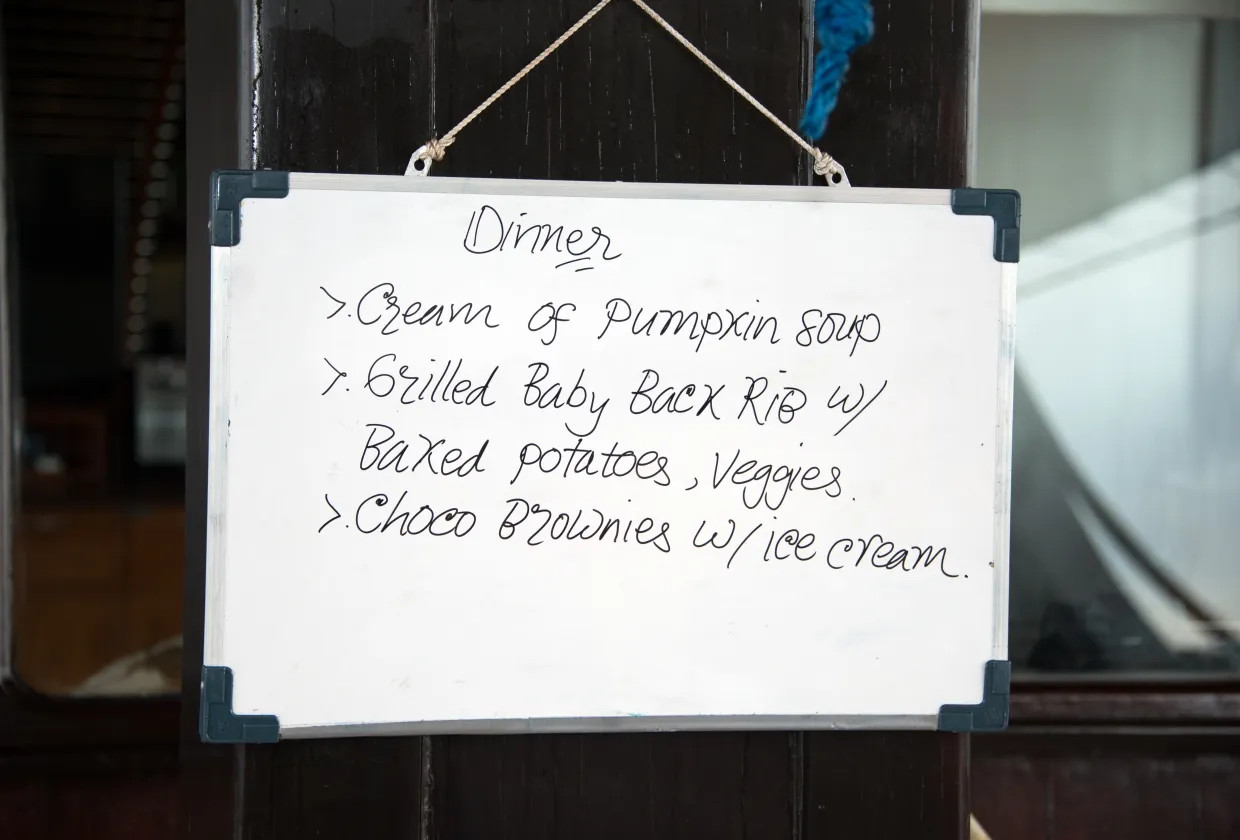 Dinner
>. Cream of Pumpkin Soup
>. Grilled Baby Back Rib w/
Baked potatoes, Veggies.
>. Choco Brownies w/ ice cream.